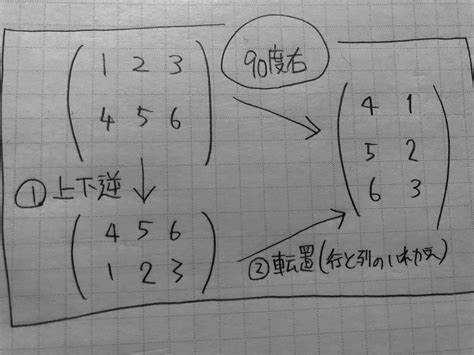 1 2 3
4 5 6
90度右
4 1
5 2
6 3
①上下逆
4 5 6
1 2 3
②転置(行と列のいれかえ)